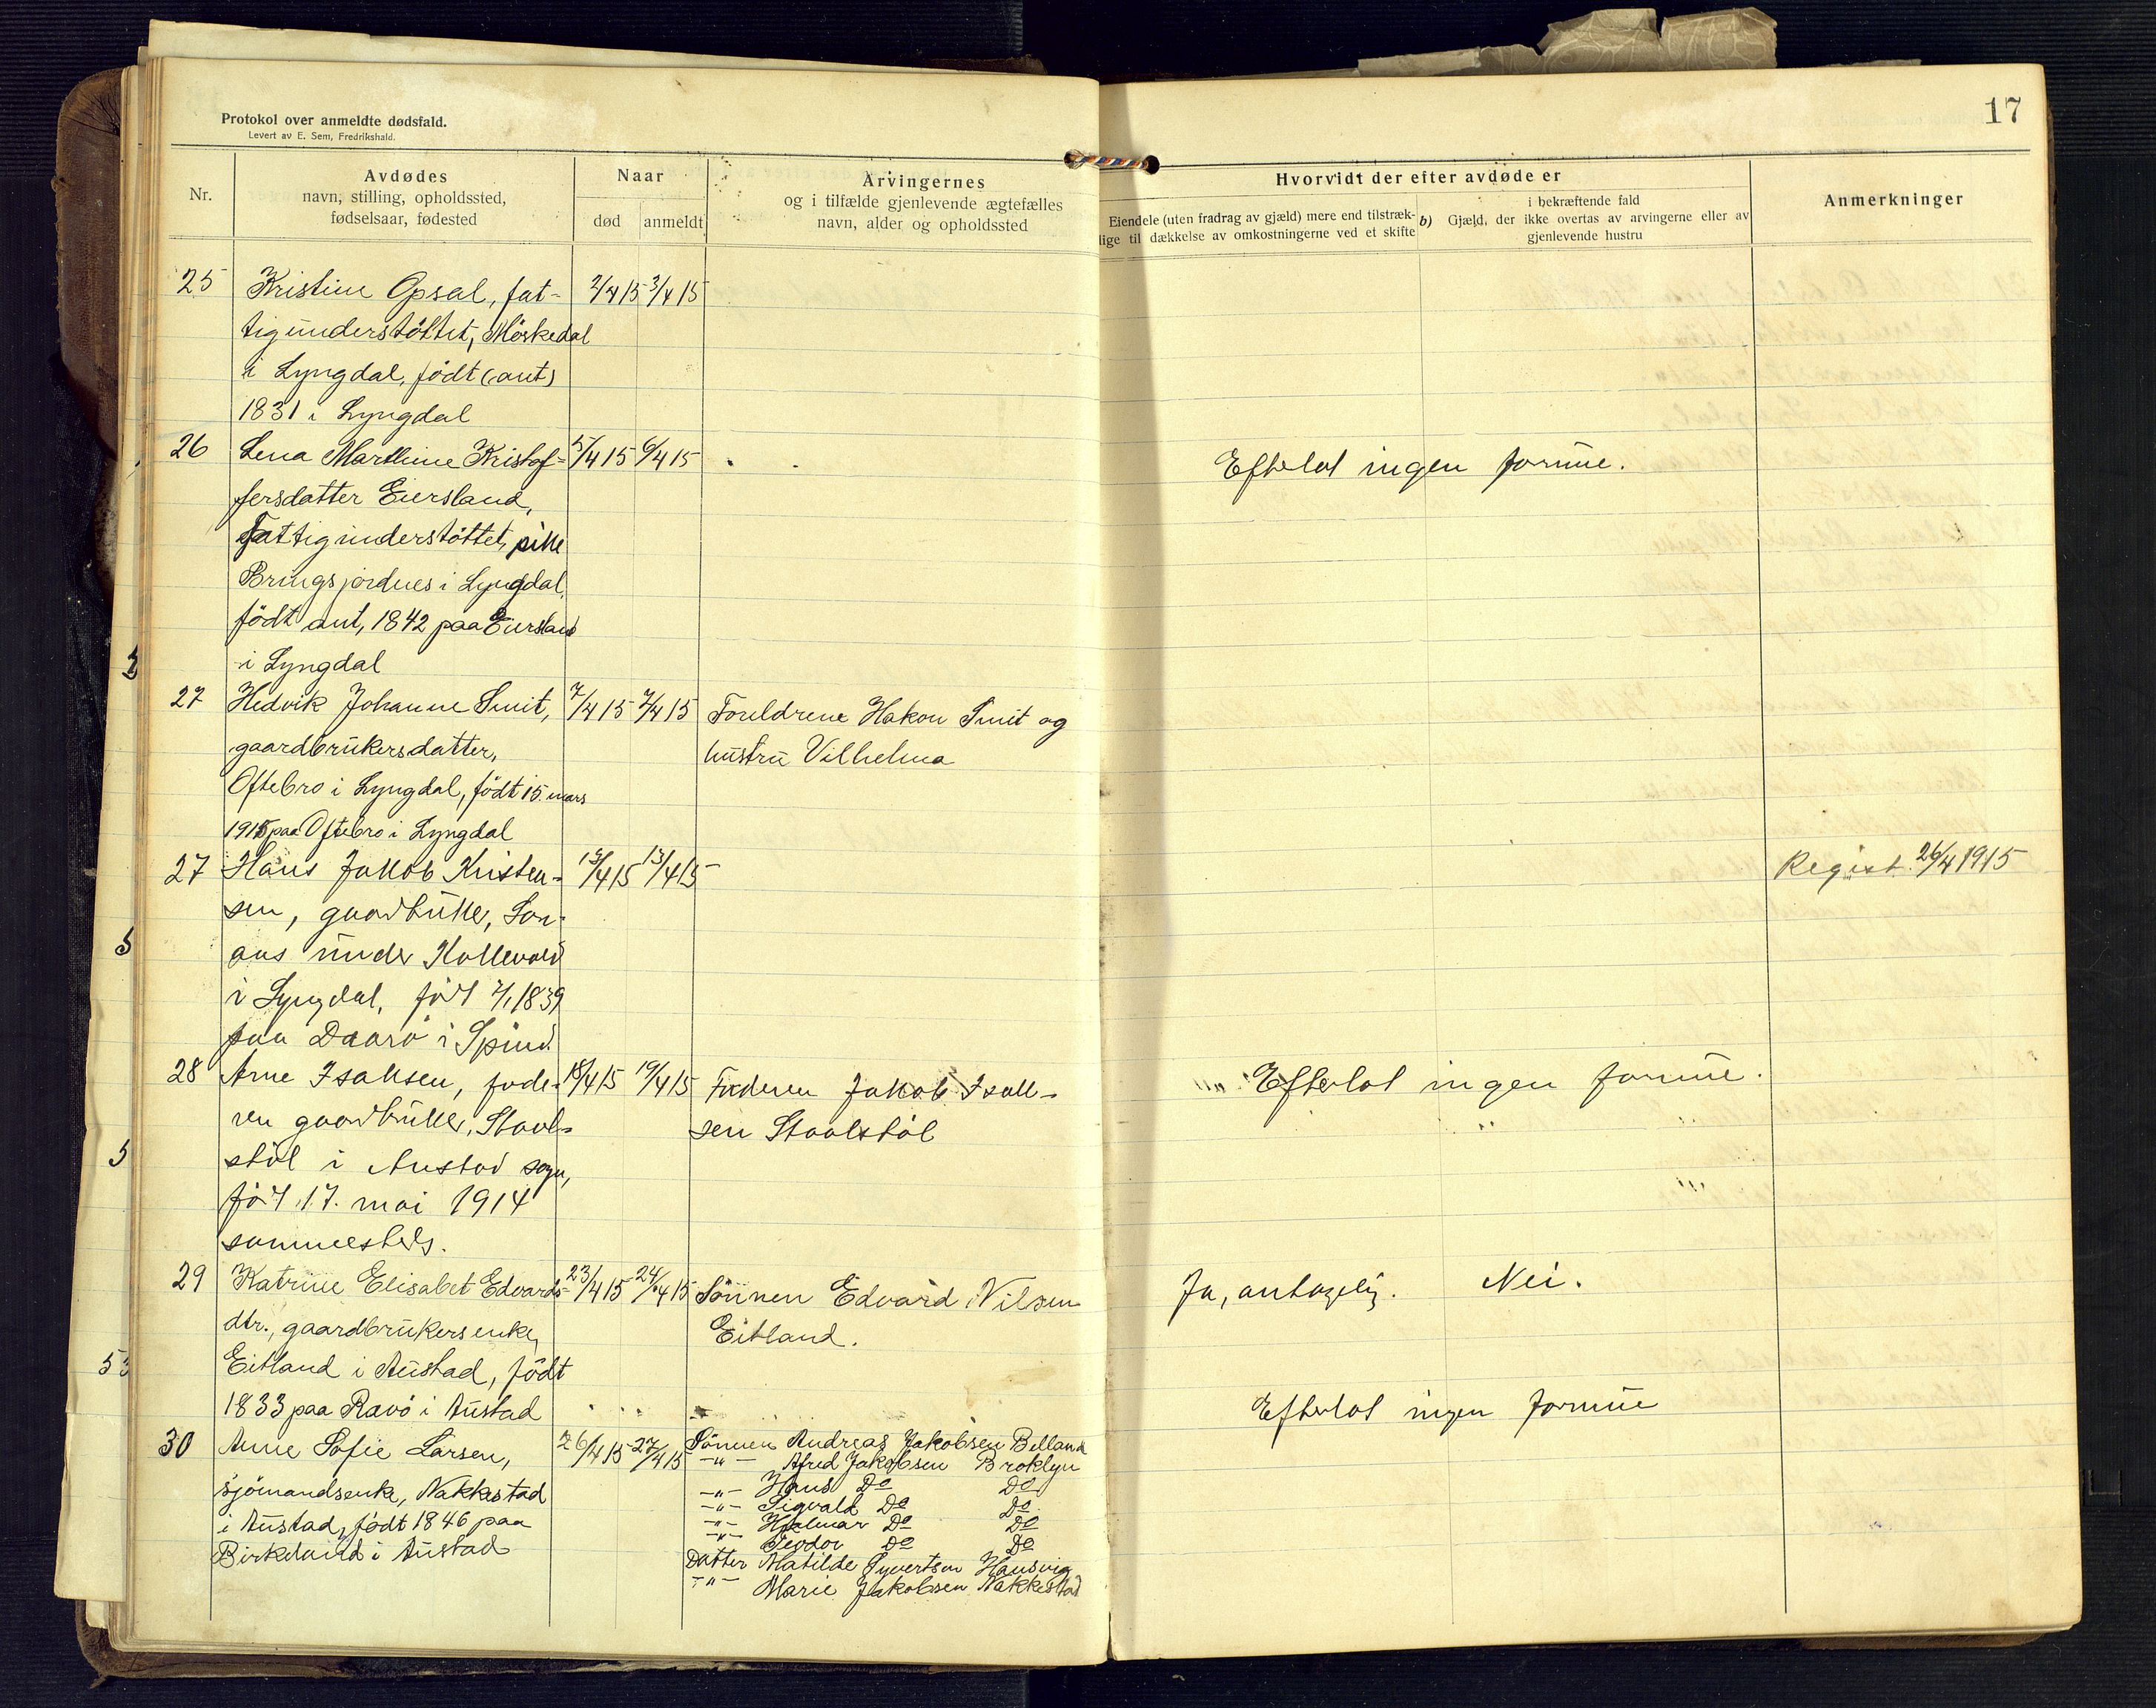 17
Protokol over anmeldte dødsfald.
Levert av E. Sem, Fredrikshald.
Nr.
Avdødes
navn, stilling, opholdssted,
fødselsaar, fødested
Naar
død anmeldt
Arvingernes
og i tilfælde gjenlevende ægtefælles
navn, alder og opholdssted
Hvorvidt der efter avdøde er
Eiendele (uten fradrag av gjæld) mere end tilstræk-
lige til dækkelse av omkostningerne ved et skifte
b) Gjæld, der
i bekræftende fald
ikke overtas av arvingerne eller av
gjenlevende hustru
Anmerkninger
25 Kristine Opsal, fat- 2/4 15 3/4 15
tigunderstöttet, Möskedal
i Lyngdal, födt (ant)
1831 i Lyngdal
26 Lena Marthine Kristof- 5/4 15 6/4 15 Efterlot ingen formue.
fersdatter Eiersland,
Fattigunderstöttet, pike
Bringsjordnes i Lyngdal,
födt ant, 1842 paa Eiersland
i Lyngdal
27 Hedvik Johanne Smit, 7/4 15 7/4 15 Foreldrene Hakon Smit og
gaardbrukersdatter, hustru Vilhelma
Oftebro i Lyngdal, födt 15. mars
1915 paa Oftebro i Lyngdal
27 Hans Jakob Kristen- 13/4 15 13/4 15 Regist. 26/4 1915
sen, gaardbruker,
under Kollevold
i Lyngdal, född 1839
paa Daarö i Spind.
28 Arne Isaksen, fade- 18/4 15 19/4 15 Faderen Jakob Isak- Efterlot ingen formue.
ren gaardbruker, Staal- sen Staalstöl
stöl i Austad sogn,
född 17. mai 1914
sammesteds.
29 Katrine Elisabet Edvards- 23/4 15 24/4 15 Sönnen Edvard Nilsen Ja, antagelig. Nei.
dtr., gaardbrukersenke, Eitland.
Eitland i Austad, födt
1833 paa Ravö i Austad Efterlot ingen formue
30 Anne Sofie Larsen, 26/4 15 27/4 15 Sönnen Andreas Jakobsen Belland
sjömandsenke, Nakkestad -"- Afred Jakobsen Broklyn
i Austad, födt 1846 paa -"- Hans Do Do
Birkeland i Austad -"- Sigvald Do Do
-"- Hjelmar Do Do
-"- Teodor Do Do
Datter Matilde Syvertsen Hansvig
-"- Marie Jakobsen Nakkestad